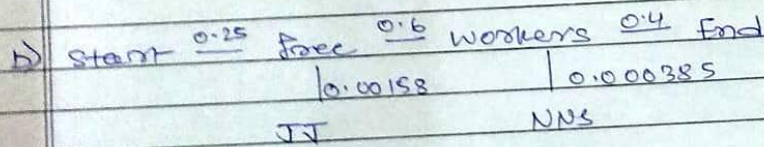 b) Start 0.25 free 0.6 workers 0.4 End
0.00158 0.000385
JJ NNS